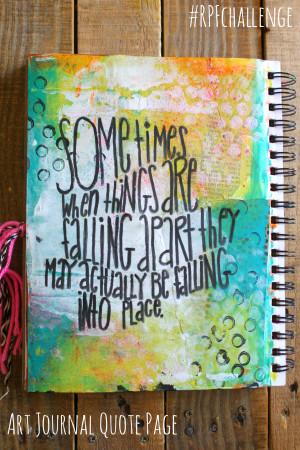 #RPFchallenge
SOMEtimes
when thiNGS ARE
fALLiNG APARt they
MAY ACtuALLY BE fALLiNG
iNtO PLACE.
Art Journal Quote Page